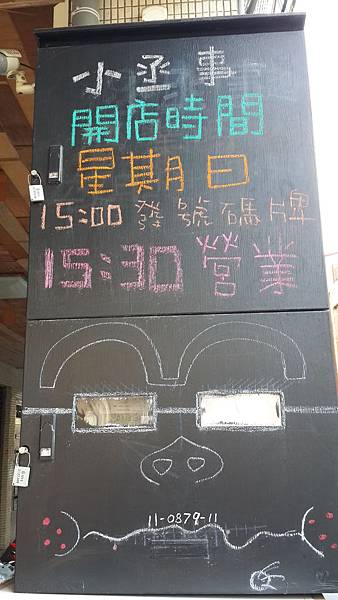 小丞事
開店時間
星期日
15:00 發號碼牌
15:30 營業
11-0879-11